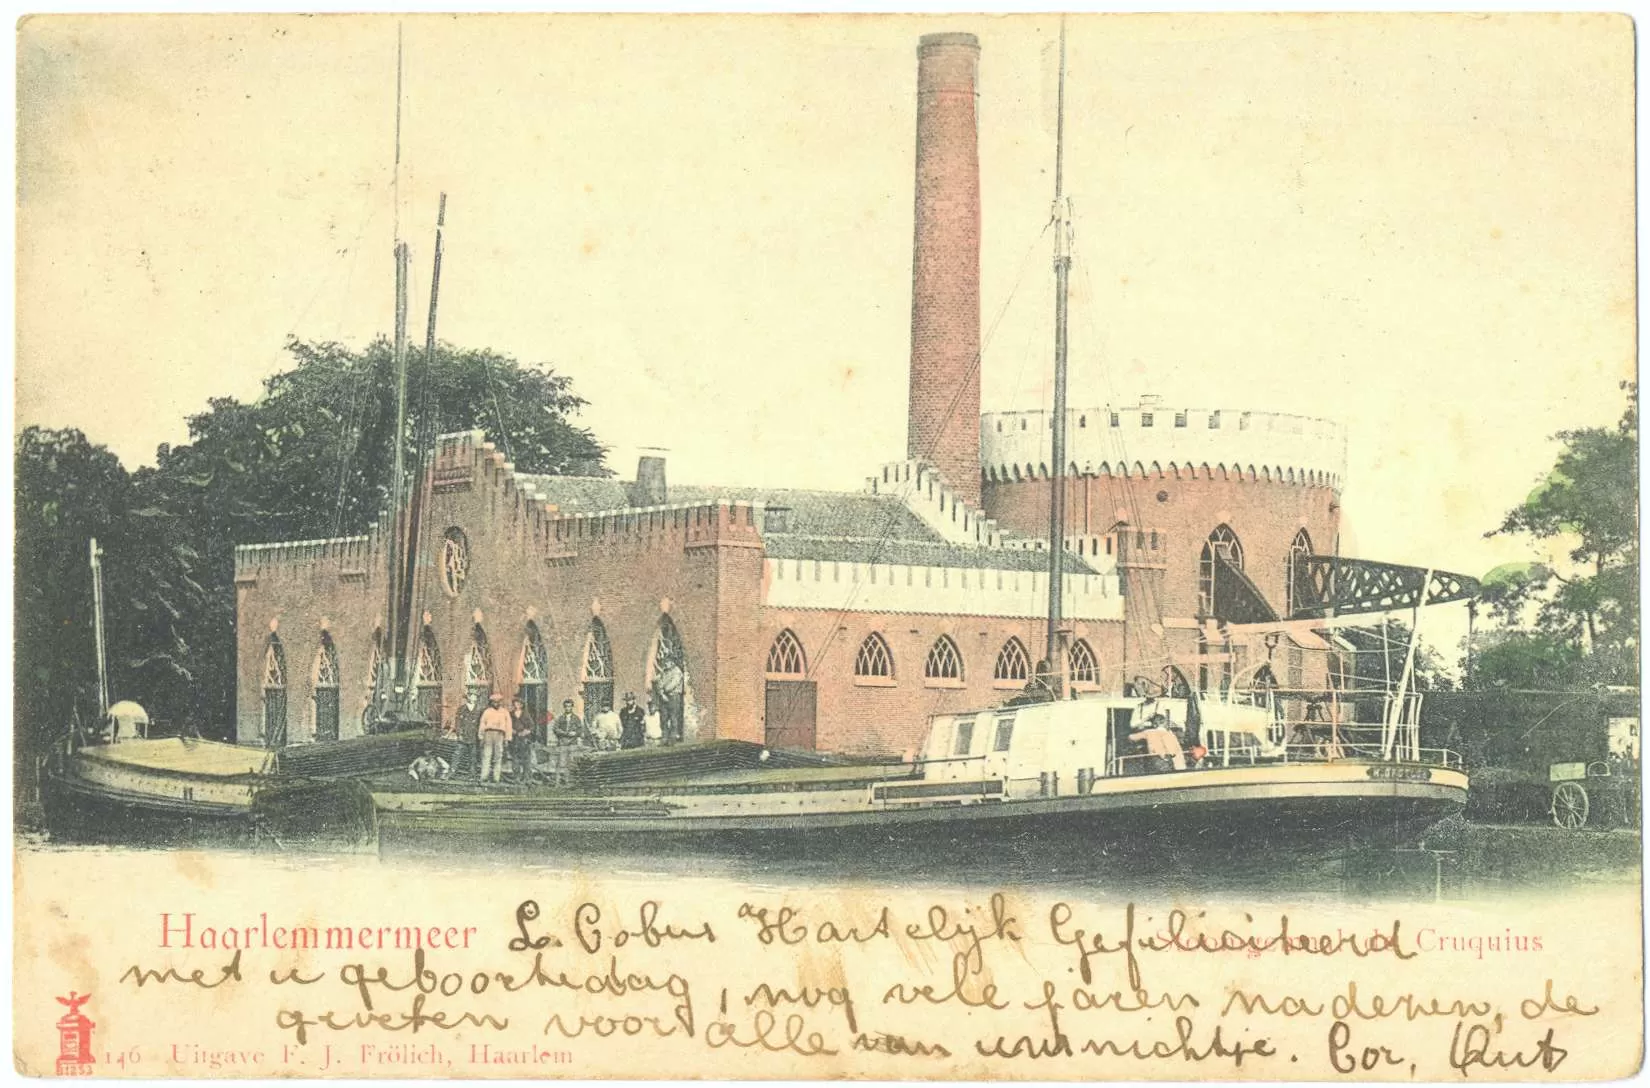 Haarlemmermeer L. Cobus Hartelijk Gefilisiteerd Cruquius
met u geboortedag, nog vele jaren na dezen, de
groeten voor alle van uw nichtje. Cor,
146 Uitgave F. J. Frölich, Haarlem